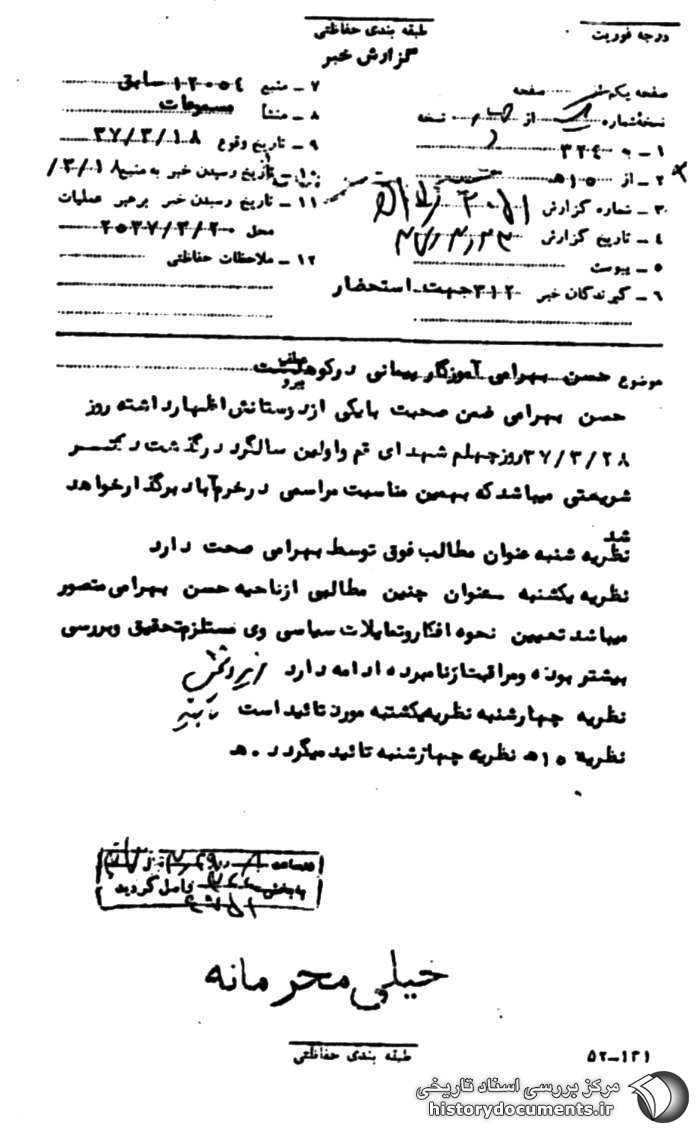 درجه فوریت
طبقه بندی حفاظتی
گزارش خبر
صفحه یکم از صفحه
نسخه شماره از نسخه
۱ ـ به ۳۲۴
۲ ـ از ۱۵هـ
۳ ـ شماره گزارش
۴ ـ تاریخ گزارش
۵ ـ پیوست
۶ ـ گیرندگان خبر ۳۱۲جهت استحضار
۷ ـ منبع ۱۲۰۵۴ سابق
۸ ـ منشأ مسموعات
۹ ـ تاریخ وقوع ۳۷/۳/۱۸
۱۰ ـ تاریخ رسیدن خبر به منبع ۳/۱۸/
۱۱ ـ تاریخ رسیدن خبر برهبر عملیات
محل ۲۵۳۷/۳/۲۰
۱۲ ـ ملاحظات حفاظتی
موضوع حسن بهرامی آموزگار پیمانی در
حسن بهرامی ضمن صحبت بایکی ازدوستانش اظهارداشته روز
۳۷/۳/۲۸روزچهلم شهدای قم واولین سالگرد درگذشت دکتر
شریعتی میباشدکه بهمین مناسبت مراسمی درخرم‌آباد برگذارخواهد
شد
نظریه شنبه عنوان مطالب فوق توسط بهرامی صحت دارد
نظریه یکشنبه عنوان چنین مطالبی ازناحیه حسن بهرامی متصور
میباشد تعیین نحوه افکاروتمایلات سیاسی وی مستلزم تحقیق وبررسی
بیشتر بوده ومراقبت ازنامبرده ادامه دارد
نظریه چهارشنبه نظریه یکشنبه مورد تائیداست
نظریه ۱۵هـ نظریه چهارشنبه تائید میگردد . هـ
واصل گردید
خیلی محرمانه
طبقه بندی حفاظتی
۵۲-۱۳۱
مرکز بررسی اسناد تاریخی
historydocuments.ir